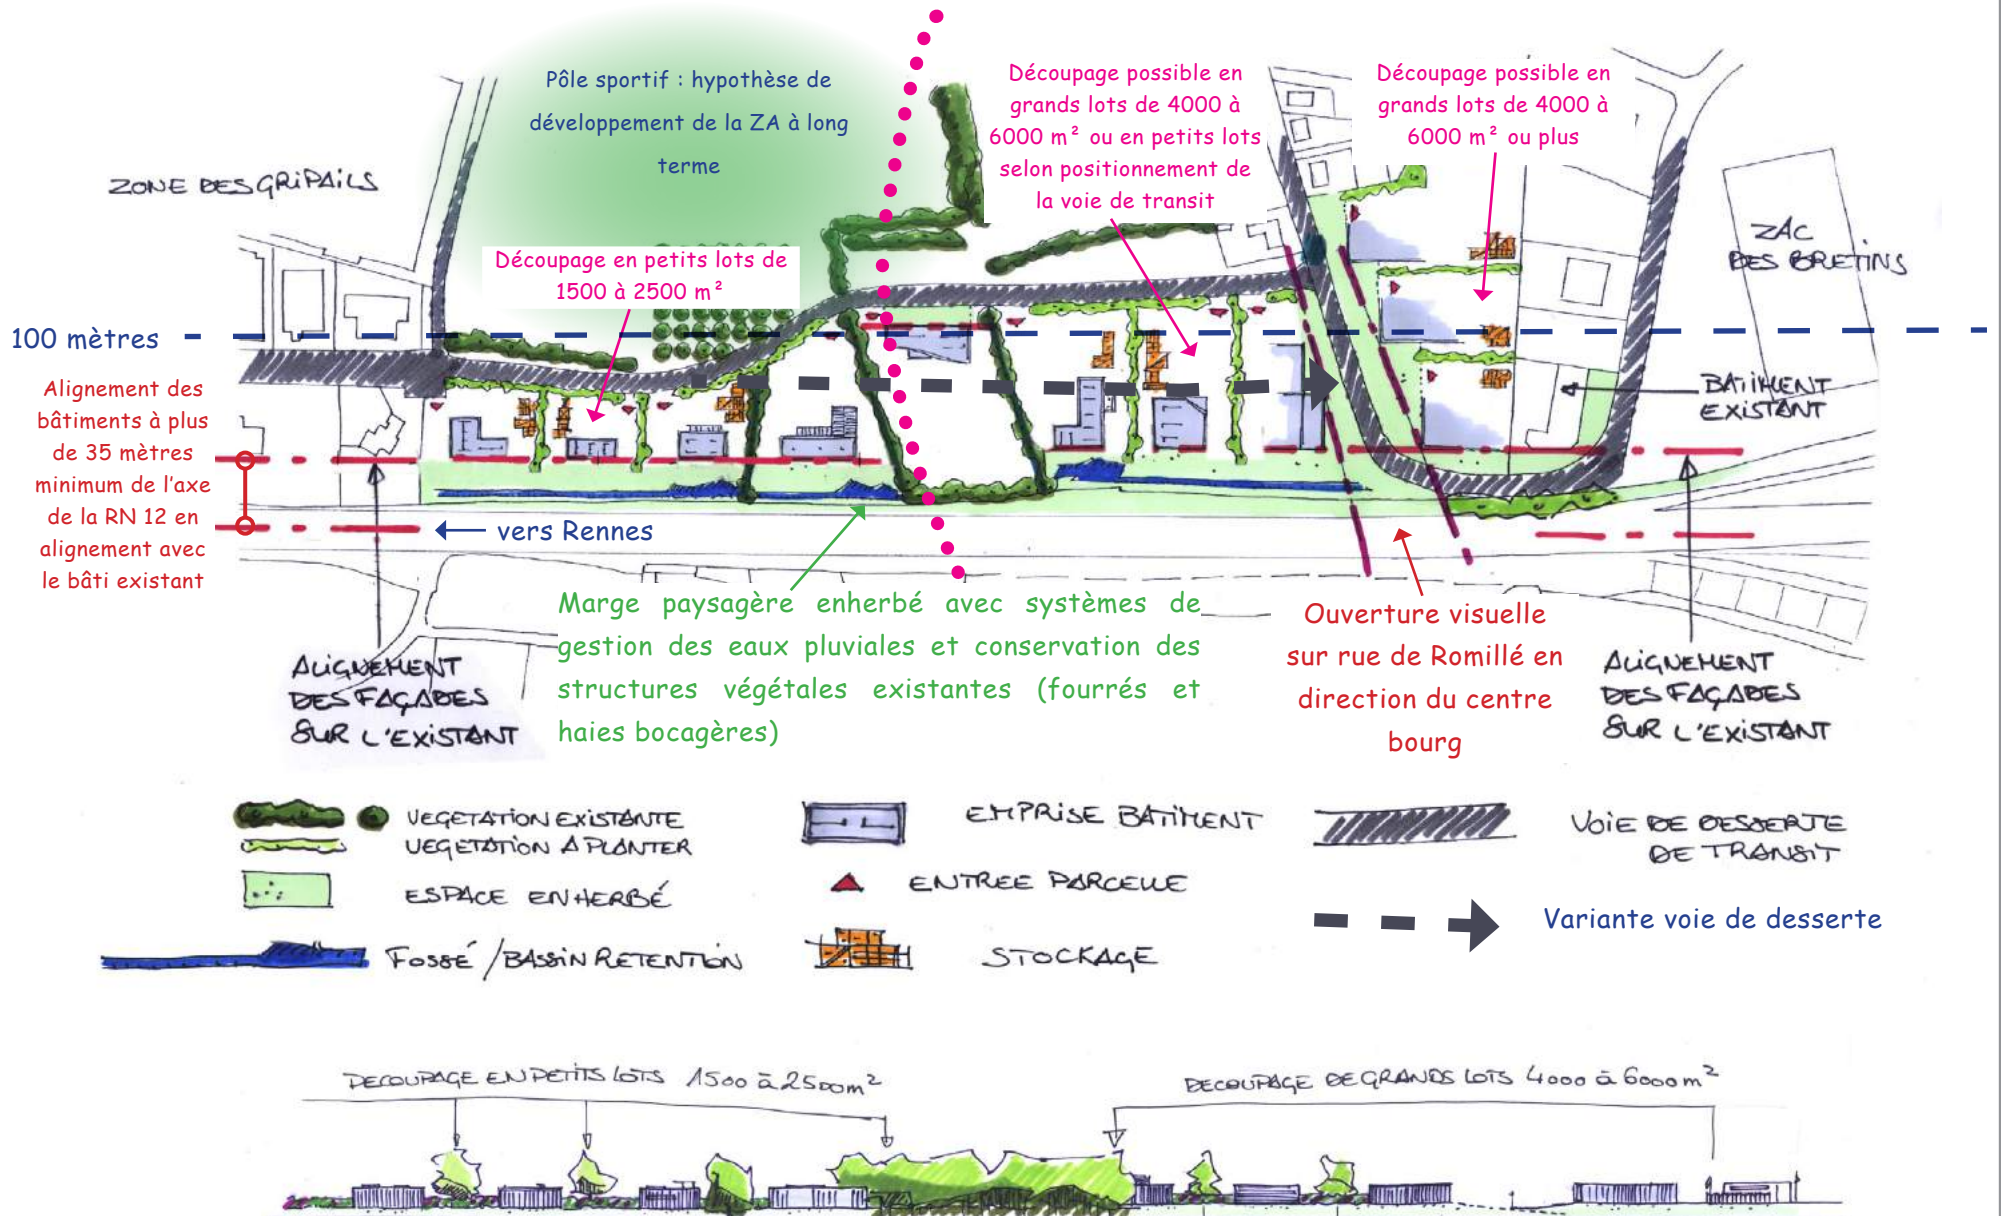 Pôle sportif : hypothèse de
développement de la ZA à long
terme
Découpage possible en
grands lots de 4000 à
6000 m² ou en petits lots
selon positionnement de
la voie de transit
Découpage possible en
grands lots de 4000 à
6000 m² ou plus
ZONE DES GRIPAILS
ZAC
DES BRETINS
Découpage en petits lots de
1500 à 2500 m²
100 mètres
Alignement des
bâtiments à plus
de 35 mètres
minimum de l'axe
de la RN 12 en
alignement avec
le bâti existant
BATIMENT
EXISTANT
vers Rennes
Marge paysagère enherbé avec systèmes de
gestion des eaux pluviales et conservation des
structures végétales existantes (fourrés et
haies bocagères)
Ouverture visuelle
sur rue de Romillé en
direction du centre
bourg
ALIGNEMENT
DES FAÇADES
SUR L'EXISTANT
ALIGNEMENT
DES FAÇADES
SUR L'EXISTANT
VEGETATION EXISTANTE
VEGETATION A PLANTER
ESPACE ENHERBÉ
FOSSÉ / BASSIN RETENTION
EMPRISE BATIMENT
ENTREE PARCELLE
STOCKAGE
VOIE DE DESSERTE
DE TRANSIT
Variante voie de desserte
DECOUPAGE EN PETITS LOTS 1500 à 2500 m²
DECOUPAGE DE GRANDS LOTS 4000 à 6000 m²